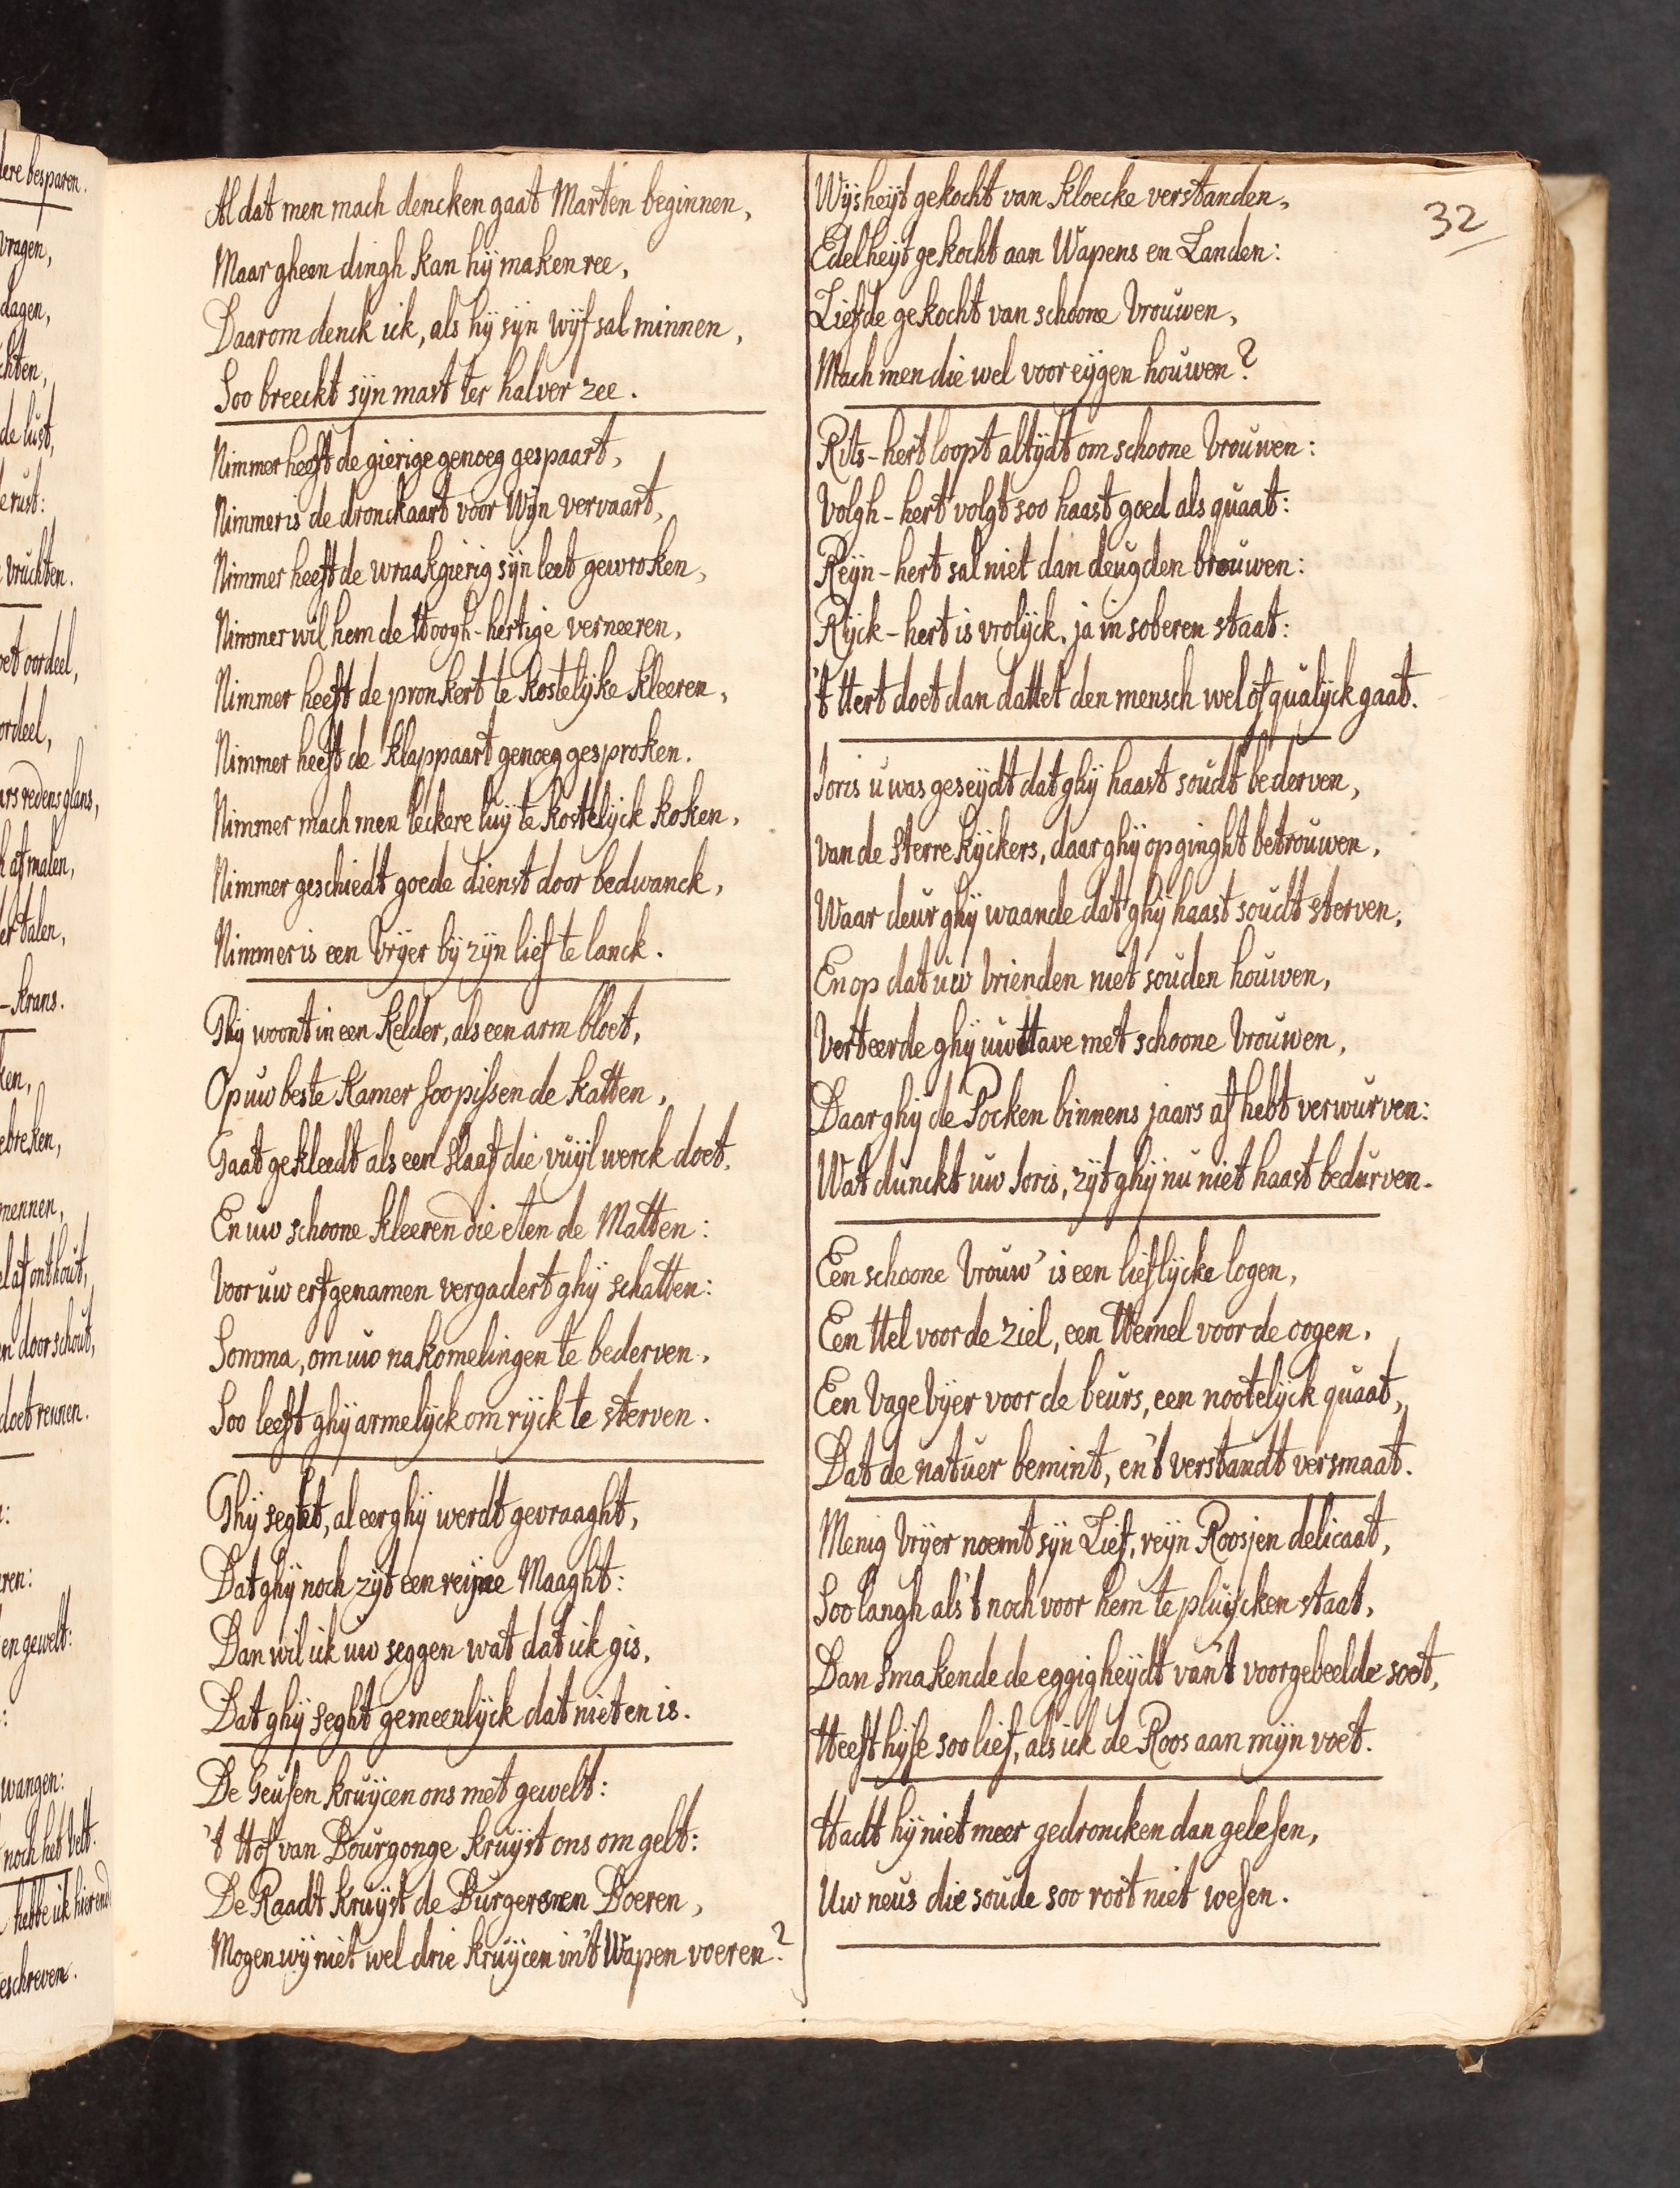 Al dat men mach dencken gaat Marten beginnen,
Maar gheen dingh kan hij maken ree,
Daarom denck ick, als hij syn wijf sal minnen,
Soo breeckt syn mast ter halver zee.
Nimmer heeft de gierige genoeg gespaart,
Nimmer is de dronckaart voor Wijn vervaart,
Nimmer heeft de wraakgierig syn leet gewroken,
Nimmer wil hem de Hoogh-hertige verneeren,
Nimmer heeft de pronkert te kostelijke kleeren,
Nimmer heeft de klappaart genoeg gesproken.
Nimmer mach men leckere luij te kostelijck koken,
Nimmer geschiedt goede dienst door bedwanck,
Nimmer is een Vrijer bij zijn lief te lanck.
Ghij woont in een Kelder, als een arm bloet,
Op uw beste Kamer soo pissen de katten,
Gaat gekleedt als een slaaf die vuijl werck doet,
En uw schoone kleeren die eten de Matten:
Voor uw erfgenamen vergadert ghij schatten:
Somma, om uw nakomelingen te bederven,
Soo leeft ghij armelijck om rijck te sterven.
Ghij seght, al eer ghij werdt gevraaght,
Dat ghij noch zijt een reijne Maaght:
Dan wil ick uw seggen wat dat ick gis,
Dat ghij seght gemeenlijck dat niet en is.
De Geusen kruijcen ons met gewelt:
't Hof van Bourgonge kruijst ons om gelt:
De Raadt kruijst de Burgeren en Boeren,
Mogen wij niet wel drie kruijcen in't Wapen voeren?
32
Wijsheijt gekocht van kloecke verstanden,
Edelheijt gekocht aan Wapens en Landen:
Liefde gekocht van schoone Vrouwen,
Mach men die wel voor eijgen houwen?
Rits-hert loopt altijdt om schoone Vrouwen:
Volgh-hert volgt soo haast goed als quaat:
Reijn-hert sal niet dan deugden brouwen:
Rijck-hert is vrolijck, ja in soberen staat:
't Hert doet dan dattet den mensch wel of qualijck gaat.
Joris u was geseijdt dat ghij haast soudt bederven,
van de sterrekijckers, daar ghij op ginght betrouwen,
Waar deur ghij waande dat ghij haast soudt sterven,
En op dat uw Vrienden niet souden houwen,
Verteerde ghij uw Have met schoone Vrouwen,
Daar ghij de Pocken binnens jaars af hebt verwurven:
Wat dunckt uw Joris, zijt ghij nu niet haast bedurven.
Een schoone Vrouw' is een lieflijcke logen,
Een Hel voor de ziel, een Hemel voor de oogen,
Een Vagevijer voor de beurs, een nootelijck quaat,
Dat de natuer bemint, en 't verstandt versmaat.
Menig Vrijer noemt syn Lief, reijn Roosjen delicaat,
Soo langh als 't noch voor hem te pluijcken staat,
Dan smakende de eggigheijdt van't voorgebeelde soet,
Heeft hijse soo lief, als ick de Roos aan mijn voet.
Hadt hij niet meer gedroncken dan gelesen,
Uw neus die soude soo root niet wesen.